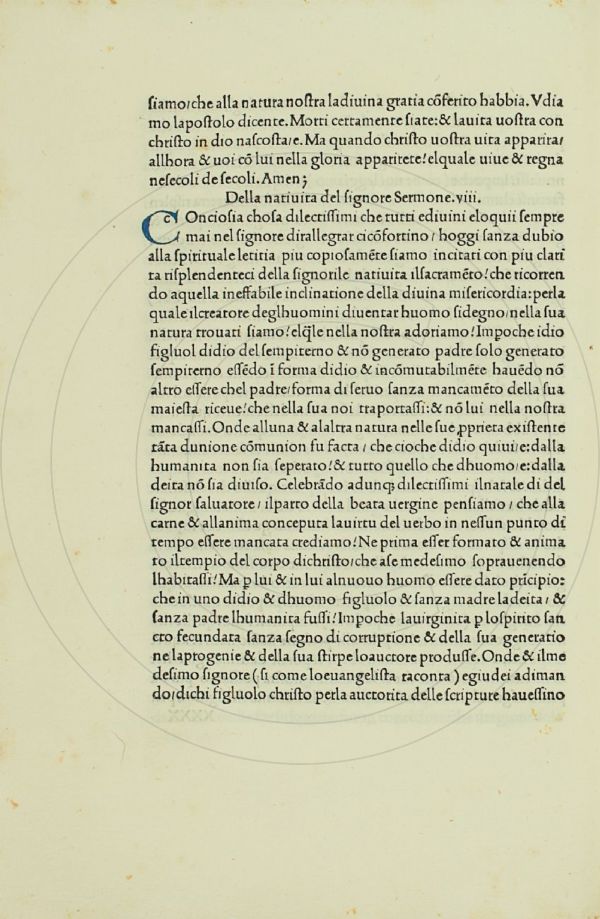 ſiamo/che alla natura noſtra ladiuina gratia cõferito habbia. Vdia
mo lapoſtolo dicente. Morti certamente ſiate:& lauita uoſtra con
chriſto in dio naſcoſta/e. Ma quando chriſto uoſtra uita apparira/
allhora & uoi cõ lui nella gloria apparirete!elquale uiue & regna
neſecoli de ſecoli. Amen;
Della natiuita del ſignore Sermone.viii.
COncioſia choſa dilectiſſimi che tutti ediuini eloquii ſempre
mai nel ſignore dirallegrar cicõfortino / hoggi ſanza dubio
alla ſpirituale letitia piu copioſamẽte ſiamo incitati con piu clari
ta riſplendenteci della ſignorile natiuita ilſacramẽto!che ricorren
do aquella ineffabile inclinatione della diuina miſericordia:perla
quale ilcreatore deglhuomini diuentar huomo ſidegno/nella ſua
natura trouati ſiamo!elq̃le nella noſtra adoriamo!Impoche idio
figluol didio del ſempiterno & nõ generato padre ſolo generato
ſempiterno eſſẽdo ĩ forma didio & incõmutabilmẽte hauẽdo nõ
altro eſſere chel padre/forma di ſeruo ſanza mancamẽto della ſua
maieſta riceue!che nella ſua noi traportaſſi:& nõ lui nella noſtra
mancaſſi. Onde alluna & alaltra natura nelle ſue ꝓprieta exiſtente
tãta dunione cõmunion fu facta / che cioche didio quiui/e:dalla
humanita non ſia ſeperato!& tutto quello che dhuomo/e:dalla
deita nõ ſia diuiſo. Celebrãdo adunqꝫ dilectiſſimi ilnatale di del
ſignor ſaluatore / ilparto della beata uergine penſiamo / che alla
carne & allanima conceputa lauirtu del uerbo in neſſun punto di
tempo eſſere mancata crediamo!Ne prima eſſer formato & anima
to iltempio del corpo dichriſto/che aſe medeſimo ſoprauenendo
lhabitaſſi!Ma ꝑ lui & in lui alnuouo huomo eſſere dato prĩcipio:
che in uno didio & dhuomo figluolo & ſanza madre ladeita / &
ſanza padre lhumanita fuſſi!Impoche lauirginita ꝑ loſpirito ſan
cto fecundata ſanza ſegno di corruptione & della ſua generatio
ne laprogenie & della ſua ſtirpe loauctore produſſe. Onde & ilme
deſimo ſignore (ſi come loeuangeliſta raconta) egiudei adiman
do/dichi figluolo chriſto perla auctorita delle ſcripture haueſſino